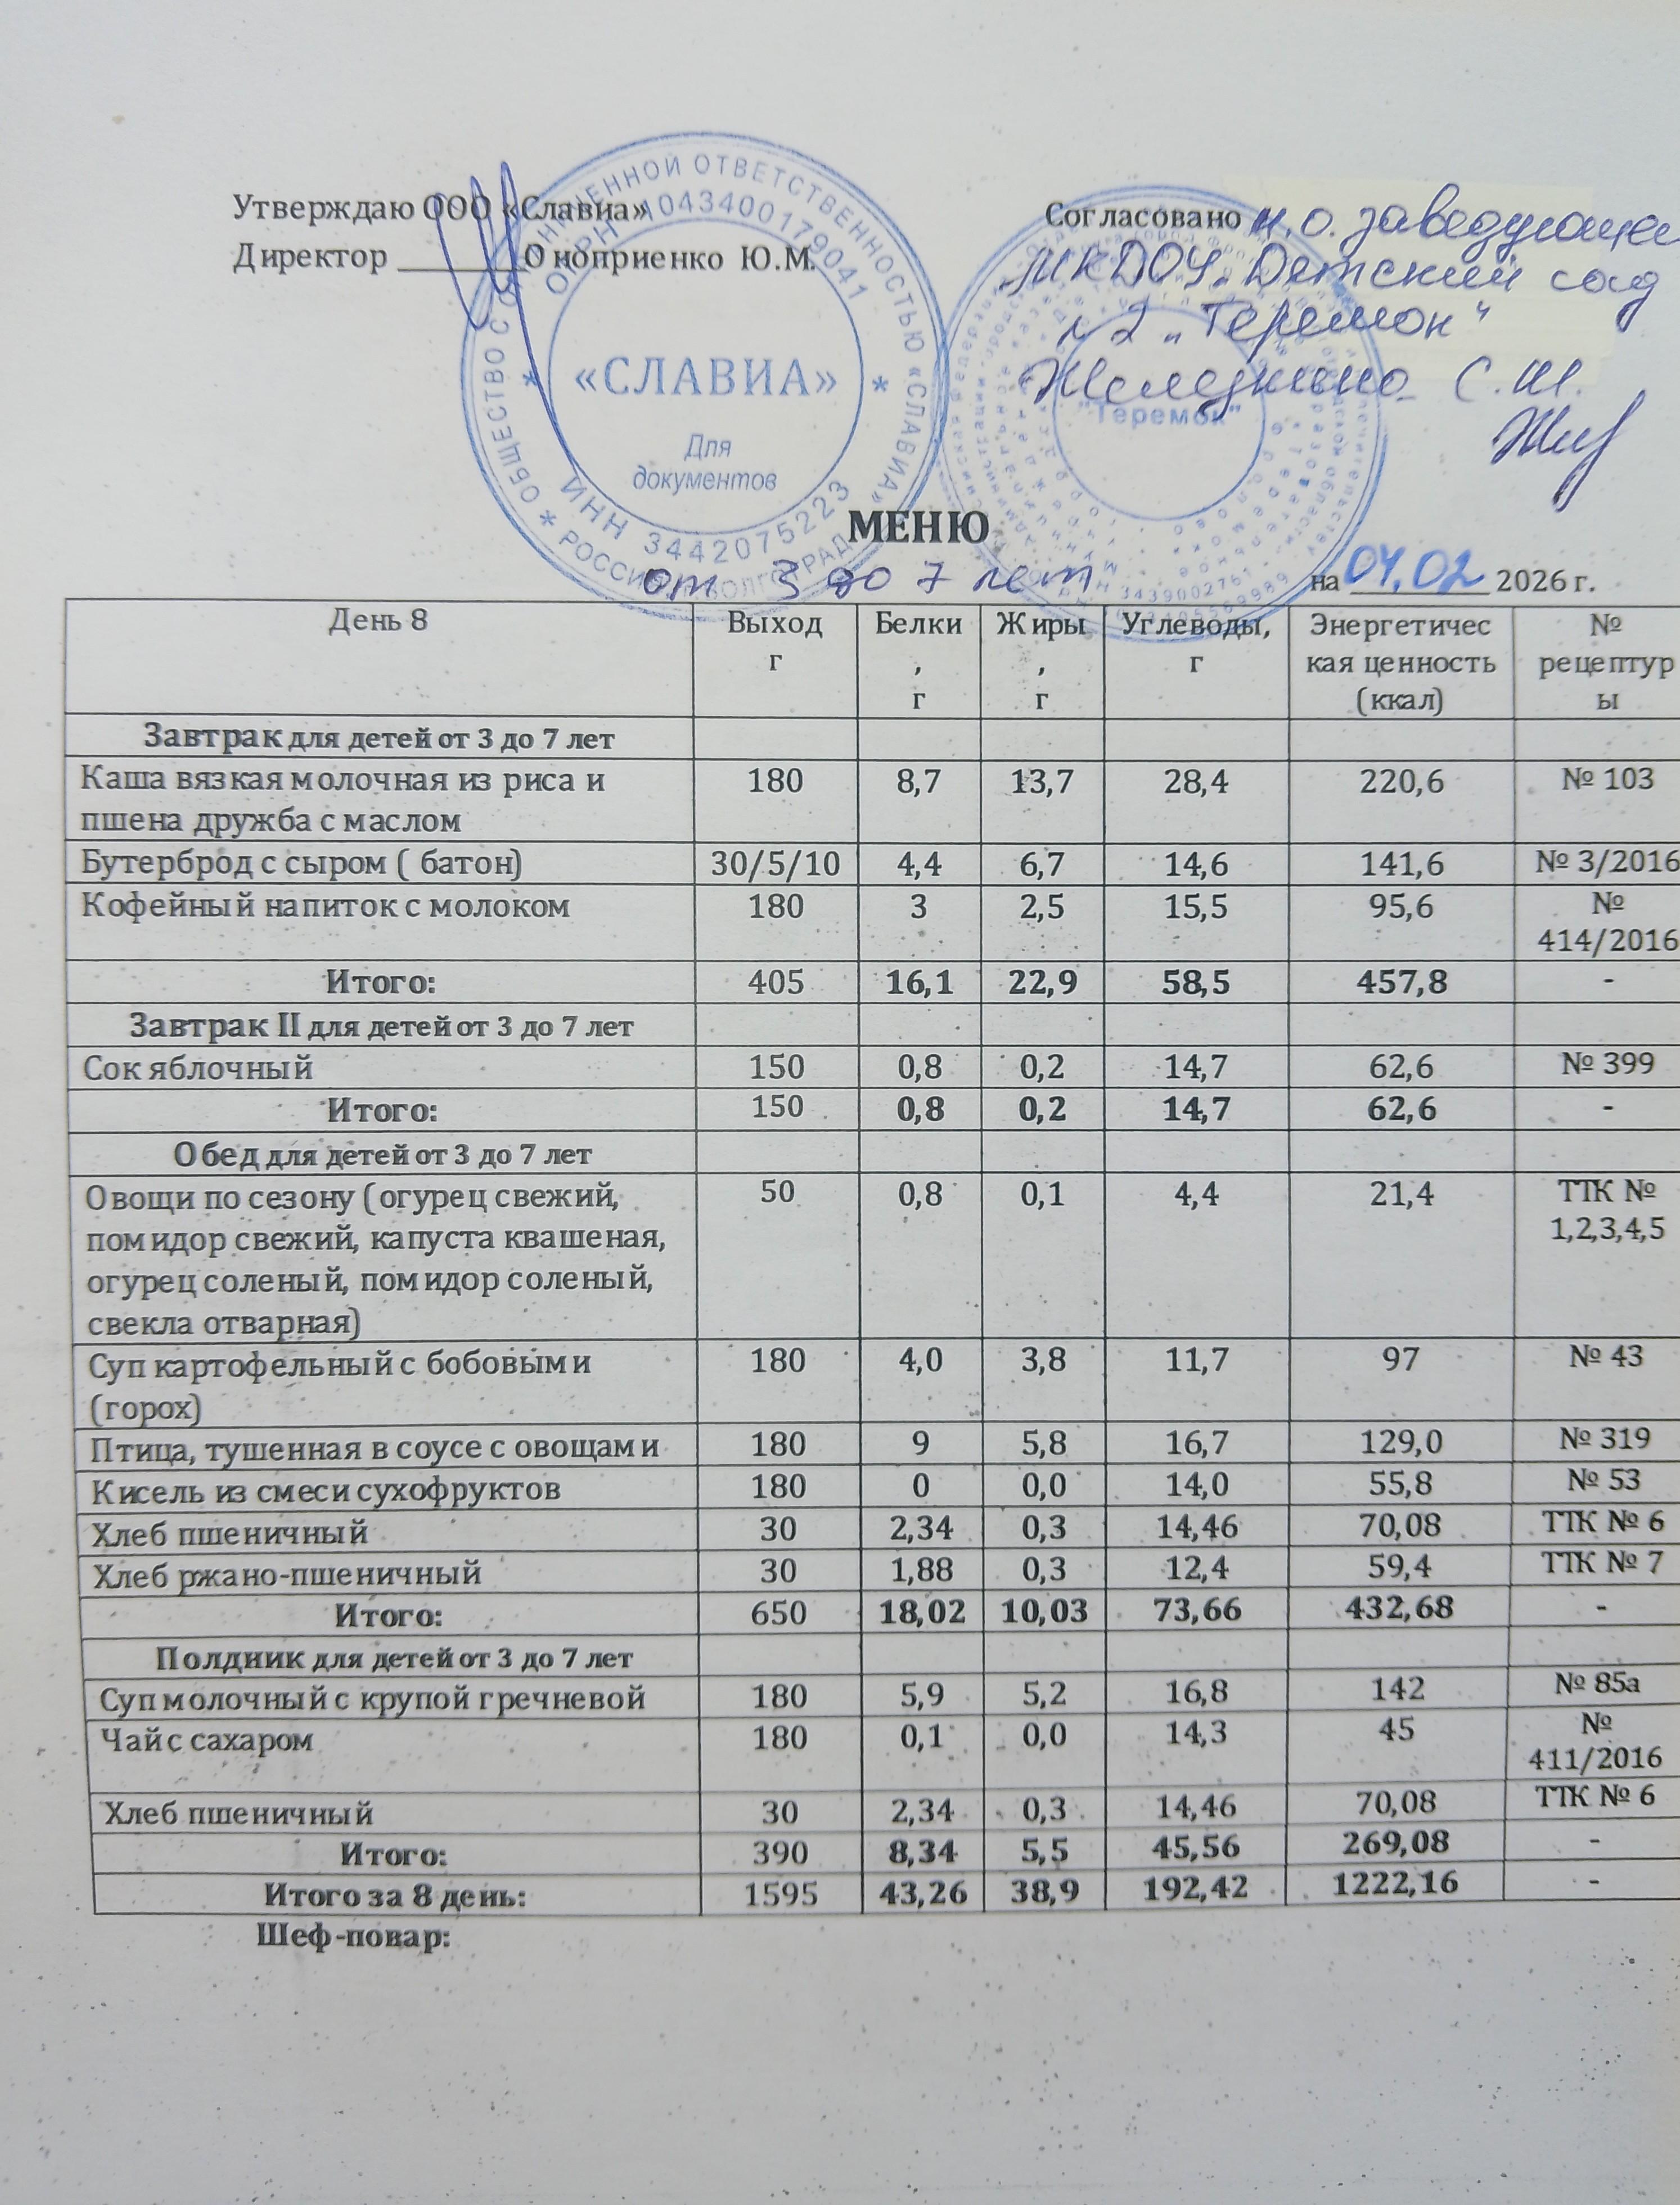 Утверждаю ООО «Славия»
Директор ________Оноприенко Ю.М.
ОБЩЕСТВО С ОГРАНИЧЕННОЙ ОТВЕТСТВЕННОСТЬЮ «СЛАВИЯ»
ОГРН 1043400179041
«СЛАВИЯ»
Для
документов
ИНН 3442075223
РОССИЯ ВОЛГОГРАД
Согласовано и.о. заведующей
МКДОУ „Детский сад
№2 „Теремок"
С.Ш.
"Теремок"
МЕНЮ
от 3 до 7 лет
на 04.02 2026 г.
День 8 Выход г Белки, г Жиры, г Углеводы, г Энергетическая ценность (ккал) № рецептуры
Завтрак для детей от 3 до 7 лет
Каша вязкая молочная из риса и 180 8,7 13,7 28,4 220,6 № 103
пшена дружба с маслом
Бутерброд с сыром ( батон) 30/5/10 4,4 6,7 14,6 141,6 № 3/2016
Кофейный напиток с молоком 180 3 2,5 15,5 95,6 №
414/2016
Итого: 405 16,1 22,9 58,5 457,8 -
Завтрак II для детей от 3 до 7 лет
Сок яблочный 150 0,8 0,2 14,7 62,6 № 399
Итого: 150 0,8 0,2 14,7 62,6 -
Обед для детей от 3 до 7 лет
Овощи по сезону (огурец свежий, 50 0,8 0,1 4,4 21,4 ТТК №
помидор свежий, капуста квашеная, 1,2,3,4,5
огурец соленый, помидор соленый,
свекла отварная)
Суп картофельный с бобовыми 180 4,0 3,8 11,7 97 № 43
(горох)
Птица, тушенная в соусе с овощами 180 9 5,8 16,7 129,0 № 319
Кисель из смеси сухофруктов 180 0 0,0 14,0 55,8 № 53
Хлеб пшеничный 30 2,34 0,3 14,46 70,08 ТТК № 6
Хлеб ржано-пшеничный 30 1,88 0,3 12,4 59,4 ТТК № 7
Итого: 650 18,02 10,03 73,66 432,68 -
Полдник для детей от 3 до 7 лет
Суп молочный с крупой гречневой 180 5,9 5,2 16,8 142 № 85а
Чай с сахаром 180 0,1 0,0 14,3 45 №
411/2016
Хлеб пшеничный 30 2,34 0,3 14,46 70,08 ТТК № 6
Итого: 390 8,34 5,5 45,56 269,08 -
Итого за 8 день: 1595 43,26 38,9 192,42 1222,16 -
Шеф-повар: